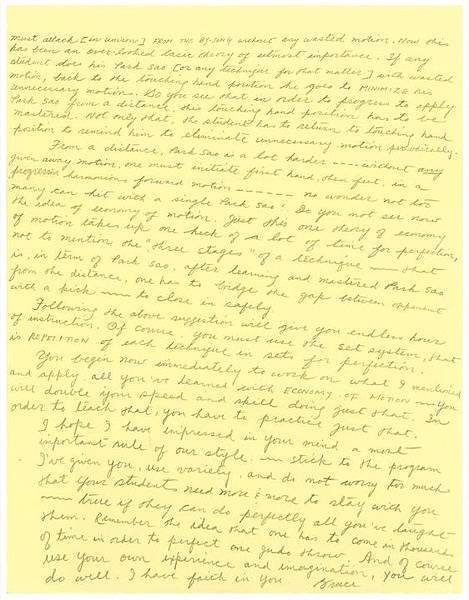 must attack [in unison] FROM THE BI-JONG without any wasted motion. Now this
has been an over-looked basic theory of utmost importance. If any
student does his Park Sao [or any technique for that matter] with wasted
motion, back to the touching hand position he goes to MINIMIZE his
unnecessary motion. So you see that in order to progress to apply
Park Sao from a distance, this touching hand position has to be
mastered. Not only that, the student has to return to touching hand
position to remind him to eliminate unnecessary motion periodically.
From a distance, Park Sao is a lot harder ---- without any
given away motion, one must initiate first hand, then feet, in a
progressive harmonious forward motion ------ no wonder not too
many can hit with a single Park Sao! Do you not see now
the idea of economy of motion. Just this one theory of economy
of motion takes up one heck of a lot of time for perfection,
not to mention the "three stages" of a technique — that
is, in term of Park Sao, after learning and mastered Park Sao
from the distance, one has to bridge the gap between opponent
with a kick — to close in safely
Following the above suggestion will give you endless hour
of instruction. Of course, you must use the set system, that
is REPETITION of each technique in sets, for perfection.
You begin now immediately to work on what I mentioned
and apply all you've learned with ECONOMY OF MOTION — you
will double your speed and skill doing just that. In
order to teach that, you have to practice just that.
I hope I have impressed in your mind a most
important rule of our style — stick to the program
I've given you, use variety, and do not worry too much
that your students need more & more to stay with you
— true if they can do perfectly all you've taught
them. Remember the idea that one has to come in thousands
of time in order to perfect one judo throw. And of course
use your own experience and imagination, you will
do well. I have faith in you Bruce